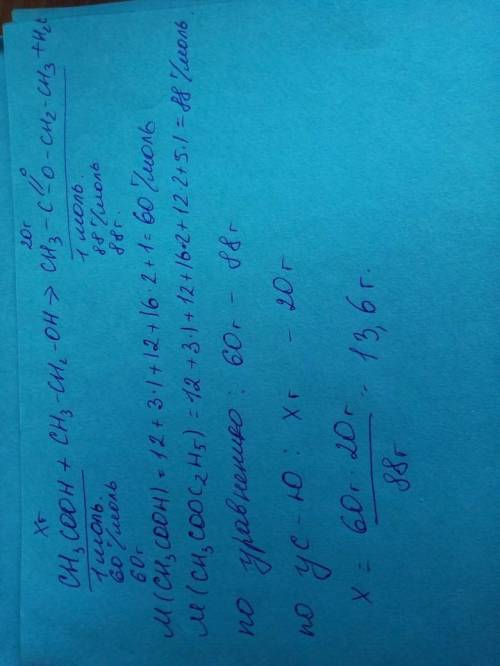 хг 20г
CH₃COOH + CH₃-CH₂-OH → CH₃-C(=O)-O-CH₂-CH₃ + H₂
1 моль 1 моль
60 г/моль 88 г/моль
60г 88г.
M(CH₃COOH) = 12+3·1+12+16·2+1=60 г/моль
M(CH₃COOC₂H₅) = 12+3·1+12+16·2+12·2+5·1=88 г/моль.
по уравнению: 60г - 88г
по ус-ю: хг - 20г
x = 60г · 20г / 88г. = 13,6 г.